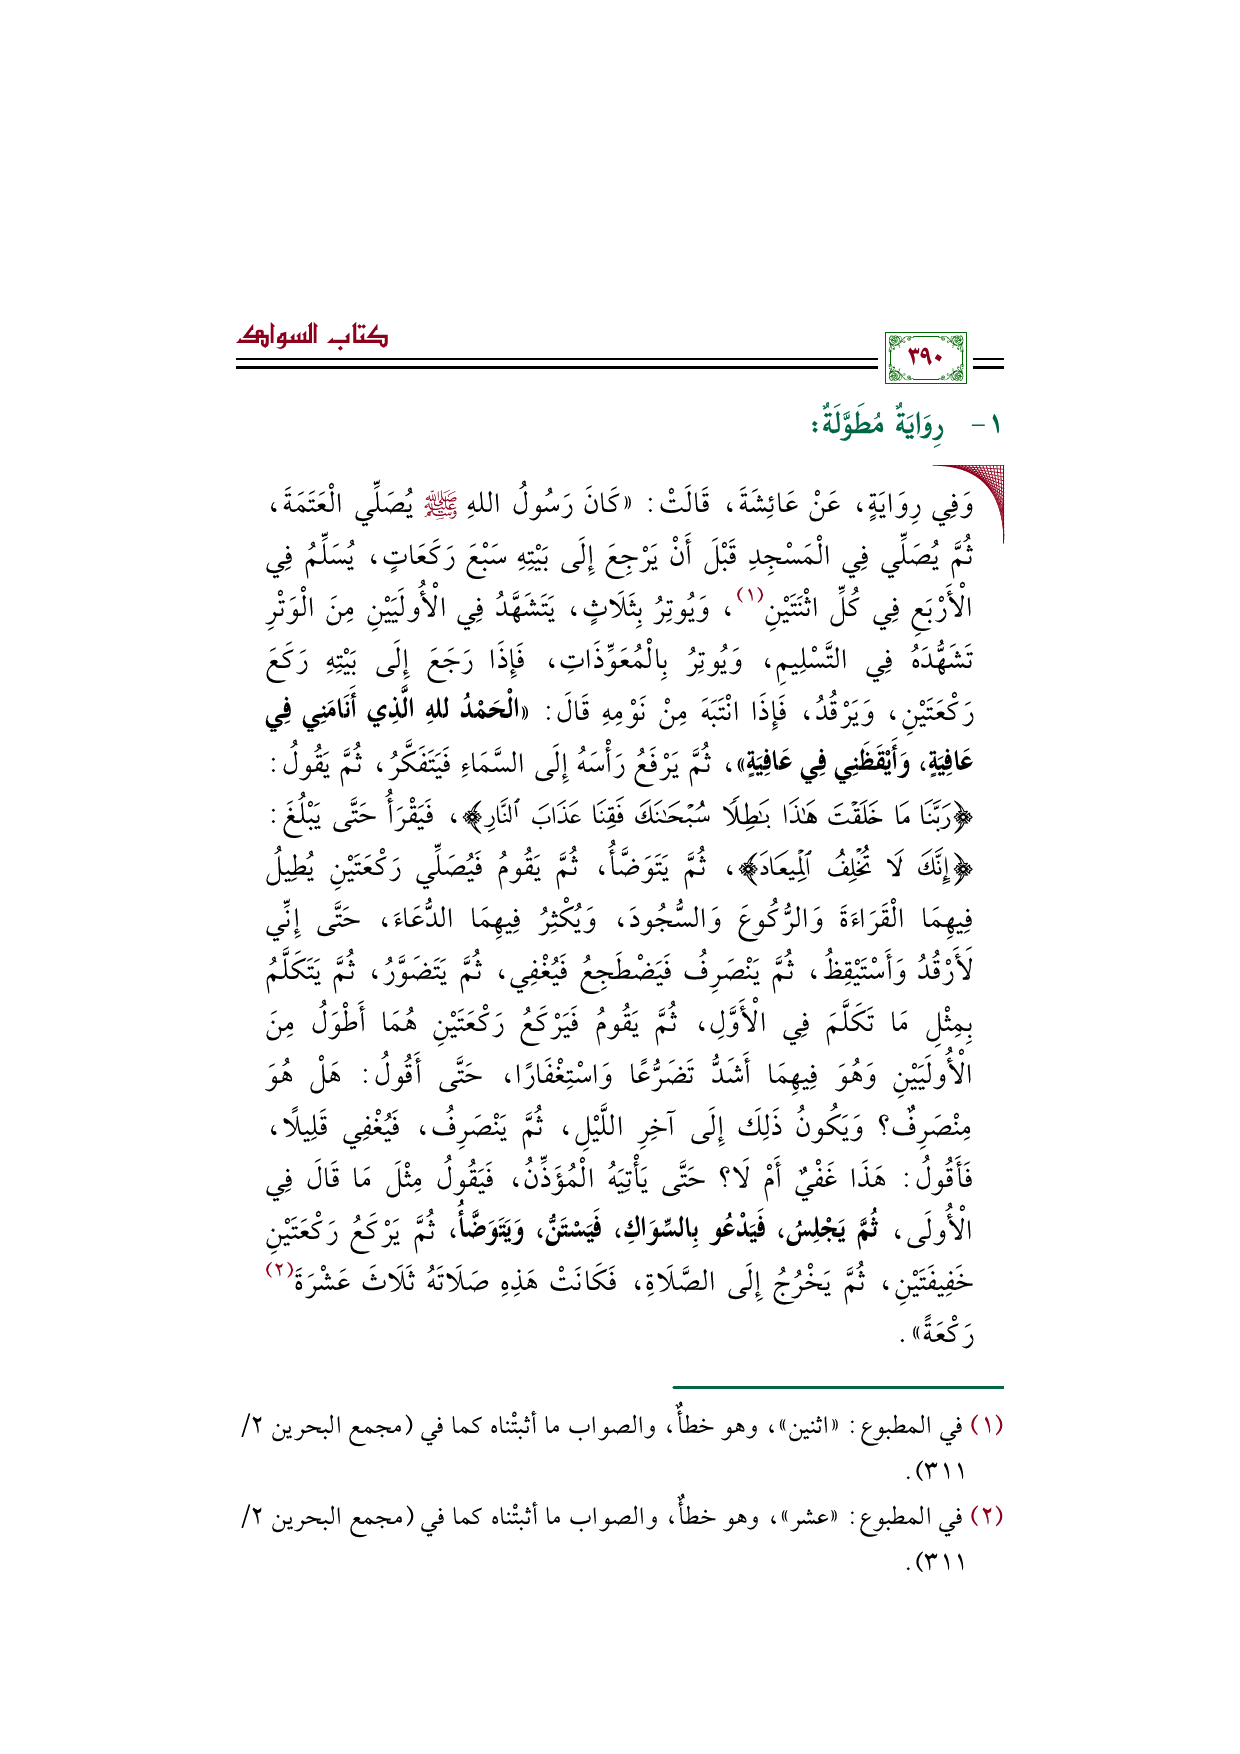 كتاب السواك
٣٩٠
١- رِوَايَةٌ مُطَوَّلَةٌ:
وَفِي رِوَايَةٍ، عَنْ عَائِشَةَ، قَالَتْ: «كَانَ رَسُولُ اللهِ ﷺ يُصَلِّي الْعَتَمَةَ،
ثُمَّ يُصَلِّي فِي الْمَسْجِدِ قَبْلَ أَنْ يَرْجِعَ إِلَى بَيْتِهِ سَبْعَ رَكَعَاتٍ، يُسَلِّمُ فِي
الْأَرْبَعِ فِي كُلِّ اثْنَتَيْنِ(١)، وَيُوتِرُ بِثَلَاثٍ، يَتَشَهَّدُ فِي الْأُولَيَيْنِ مِنَ الْوَتْرِ
تَشَهُّدَهُ فِي التَّسْلِيمِ، وَيُوتِرُ بِالْمُعَوِّذَاتِ، فَإِذَا رَجَعَ إِلَى بَيْتِهِ رَكَعَ
رَكْعَتَيْنِ، وَيَرْقُدُ، فَإِذَا انْتَبَهَ مِنْ نَوْمِهِ قَالَ: «الْحَمْدُ للهِ الَّذِي أَنَامَنِي فِي
عَافِيَةٍ، وَأَيْقَظَنِي فِي عَافِيَةٍ»، ثُمَّ يَرْفَعُ رَأْسَهُ إِلَى السَّمَاءِ فَيَتَفَكَّرُ، ثُمَّ يَقُولُ:
﴿رَبَّنَا مَا خَلَقْتَ هَٰذَا بَٰطِلًا سُبْحَٰنَكَ فَقِنَا عَذَابَ ٱلنَّارِ﴾، فَيَقْرَأُ حَتَّى يَبْلُغَ:
﴿إِنَّكَ لَا تُخْلِفُ ٱلْمِيعَادَ﴾، ثُمَّ يَتَوَضَّأُ، ثُمَّ يَقُومُ فَيُصَلِّي رَكْعَتَيْنِ يُطِيلُ
فِيهِمَا الْقَرَاءَةَ وَالرُّكُوعَ وَالسُّجُودَ، وَيُكْثِرُ فِيهِمَا الدُّعَاءَ، حَتَّى إِنِّي
لَأَرْقُدُ وَأَسْتَيْقِظُ، ثُمَّ يَنْصَرِفُ فَيَضْطَجِعُ فَيُغْفِي، ثُمَّ يَتَضَوَّرُ، ثُمَّ يَتَكَلَّمُ
بِمِثْلِ مَا تَكَلَّمَ فِي الْأَوَّلِ، ثُمَّ يَقُومُ فَيَرْكَعُ رَكْعَتَيْنِ هُمَا أَطْوَلُ مِنَ
الْأُولَيَيْنِ وَهُوَ فِيهِمَا أَشَدُّ تَضَرُّعًا وَاسْتِغْفَارًا، حَتَّى أَقُولُ: هَلْ هُوَ
مِنْصَرِفٌ؟ وَيَكُونُ ذَلِكَ إِلَى آخِرِ اللَّيْلِ، ثُمَّ يَنْصَرِفُ، فَيُغْفِي قَلِيلًا،
فَأَقُولُ: هَذَا غَفْيٌ أَمْ لَا؟ حَتَّى يَأْتِيَهُ الْمُؤَذِّنُ، فَيَقُولُ مِثْلَ مَا قَالَ فِي
الْأُولَى، ثُمَّ يَجْلِسُ، فَيَدْعُو بِالسِّوَاكِ، فَيَسْتَنُّ، وَيَتَوَضَّأُ، ثُمَّ يَرْكَعُ رَكْعَتَيْنِ
خَفِيفَتَيْنِ، ثُمَّ يَخْرُجُ إِلَى الصَّلَاةِ، فَكَانَتْ هَذِهِ صَلَاتَهُ ثَلَاثَ عَشْرَةَ(٢)
رَكْعَةً».
(١) في المطبوع: «اثنين»، وهو خطأٌ، والصواب ما أثبتْناه كما في (مجمع البحرين ٢/
٣١١).
(٢) في المطبوع: «عشر»، وهو خطأٌ، والصواب ما أثبتْناه كما في (مجمع البحرين ٢/
٣١١).